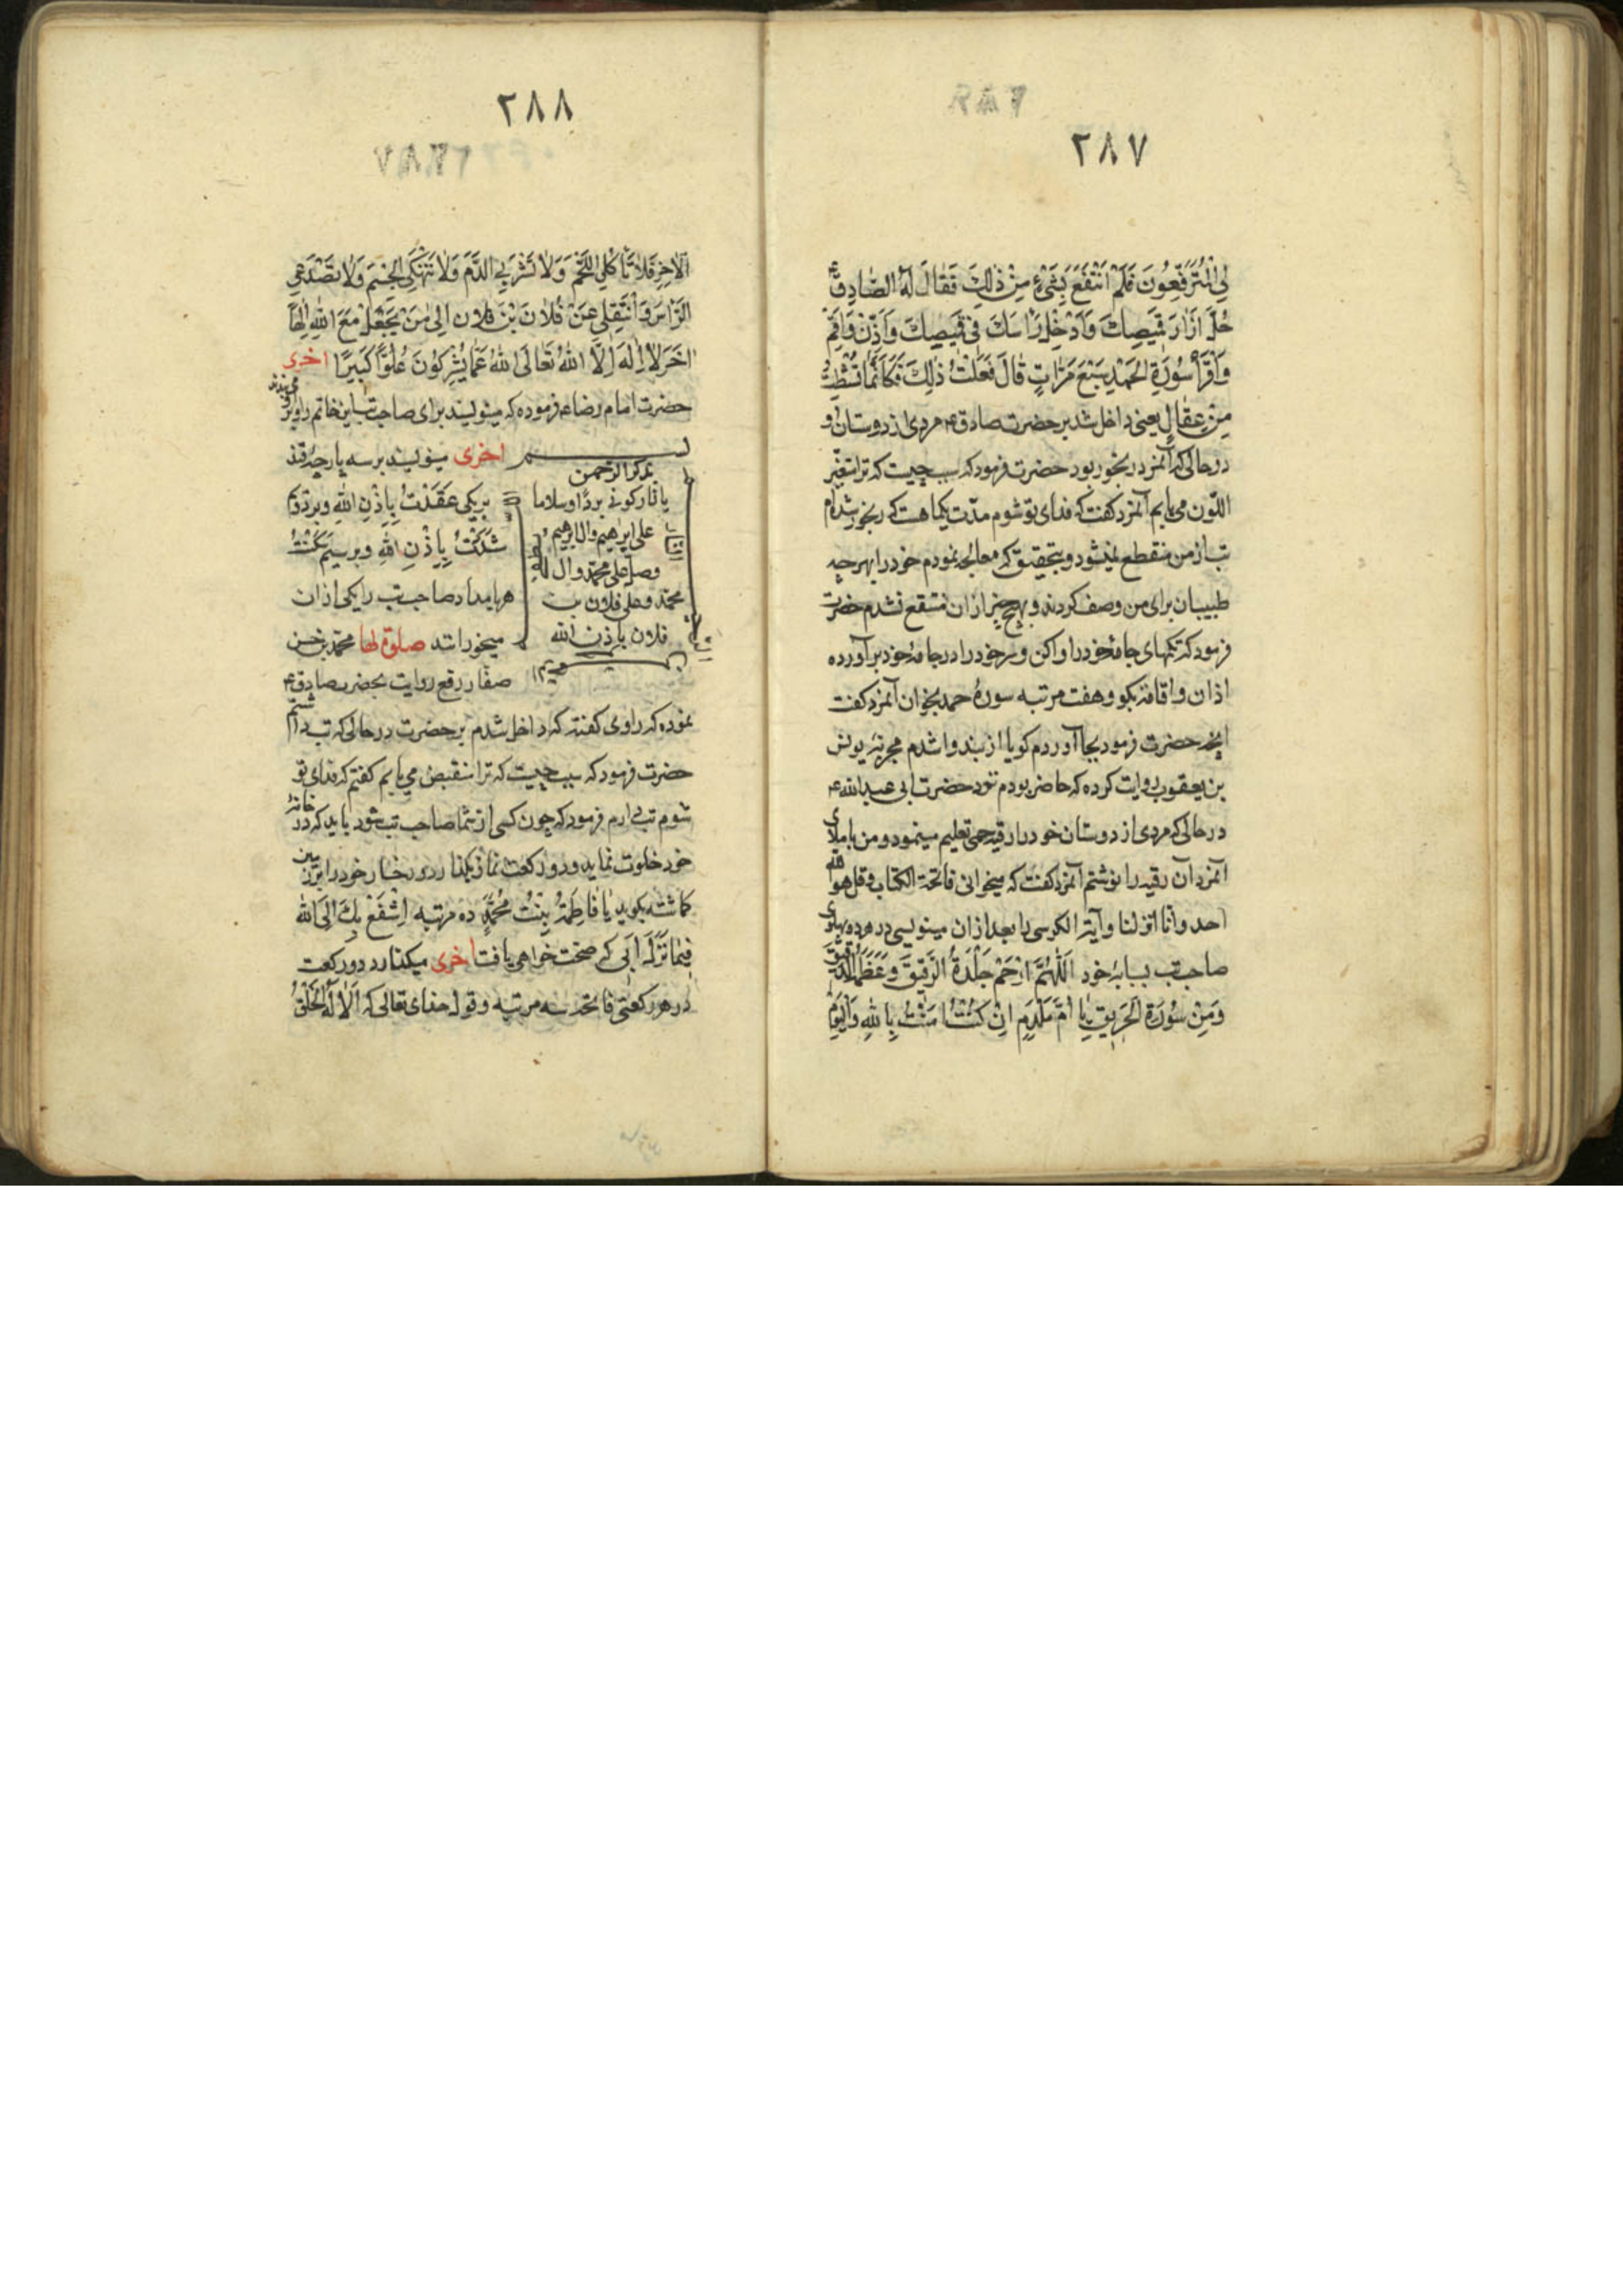 ۲۸۷
لِیَ الْمُتَرَفِّعُونَ فَلَمْ اَنْتَفِعَ بِشَیْءٍ مِنْ ذٰلِكَ فَقٰالَ لَهُ الصّٰادِقُ ع
حُلَّ اَزْرٰارَ قَمیٖصِكَ وَاَدْخِلْ رَاْسَكَ فیٖ قَمیٖصِكَ وَاَذِّنْ وَاَقِمْ
وَاقْرَاْ سُورَةَ الْحَمْدِ سَبْعَ مَرّٰاتٍ قٰالَ فَفَعَلْتُ ذٰلِكَ فَكَاَنَّمٰا نُشِطْتُ
مِنْ عِقٰالٍ یعنی داخل شد بر حضرت صادق ع مردی از دوستان او
در حالی که آنمرد رنجور بود حضرت فرمود که سبب چیست که ترا متغیّر
اللّون می یابم آنمرد کفت که فدای تو شوم مدّت یکماهست که رنجور شده‌ام
تب از من منقطع نمیشود و بتحقیق که معالجه نمودم خود را بهر چه
طبیبان برای من وصف کردند و بهیچ چیز از ان منتفع نشدم حضرت
فرمود که تکمهای جامۀ خود را واکن و سر خود را در جامۀ خود برآورده
اذان و اقامۀ بکو و هفت مرتبه سورۀ حمد بخوان آنمرد کفت
آنچه حضرت فرمود بجا آوردم کویا از بند وا شدم مجربۀ یونس
بن یعقوب روایت کرده که حاضر بودم نزد حضرت ابی عبدالله ع
در حالی که مردی از دوستان خود را رقیۀ حمی تعلیم مینمود و من باملای
آنمرد آن رقیه را نوشتم آنمرد کفت که میخوانی فاتحة الکتاب و قل هو الله
احد و انا انزلنا و آیة الکرسی را بعد از ان مینویسی در هر دو پهلوی
صاحب تب بسبابۀ خود اَللّٰهُمَّ ارْحَمْ جِلْدَهُ الرَّقیٖقَ وَعَظْمَهُ الدَّقیٖقَ
وَمِنْ سُورَةِ الْحَریٖقِ یٰا اُمَّ مِلْدَمٍ اِنْ كُنْتِ اٰمَنْتِ بِاللّٰهِ وَالْیَوْمِ
۲۸۸
الْاٰخِرِ فَلٰا تَاْكُلِی اللَّحْمَ وَلٰا تَشْرَبِی الدَّمَ وَلٰا تَنْهَكِی الْجِسْمَ وَلٰا تَصْدَعِی
الرَّاْسَ وَانْتَقِلی عَنْ فُلٰانَ بْنَ فلٰان اِلیٰ مَنْ یَجْعَلُ مَعَ اللّٰهِ اِلٰهًا
اٰخَرَ لٰا اِلٰهَ اِلَّا اللّٰهُ تَعٰالَی اللّٰهُ عَمّٰا یُشْرِكُونَ عُلُوًّا كَبیٖرًا اخری
حضرت امام رضا ع فرموده که مینویسند برای صاحب تب این خاتم را و بر او
می بندند
اخری مینویسند بر سه پارچۀ قند
بر یکی عَقَدْتُ بِاِذْنِ اللهِ و بر دوّم
شَدَدْتُ بِاِذْنِ اللهِ و بر سیم سَكَّنْتُ
هر بامداد صاحب تب را یکی از ان
میخوراند صلوة لها محمد بن حسن
الرحمن
یا نار کونی بردًا و سلاما
علی ابرهیم و ال ابرهیم
وصلّ علی محمّد و ال
محمّد و علی فلان بن
فلان باذن الله
صفّار رفع روایت بحضرت صادق ع
نموده که راوی کفته که داخل شدم بر حضرت در حالی که تب داشتم
حضرت فرمود که سبب چیست که ترا منقبض می یابم کفتم که فدای تو
شوم تب دارم فرمود که چون کسی از شما صاحب تب شود باید که در خانۀ
خود خلوت نماید و دو رکعت نماز بکذارد و رخسار خود را بر زمین
کذاشته بکوید یٰا فٰاطِمَةُ بِنْتُ مُحَمَّدٍ ده مرتبه اِسْتَشْفَعُ بِكِ اِلَی اللّٰهِ
فیٖمٰا نَزَلَ اَبی که صحت خواهی یافت اخری میکذارد دو رکعت
در هر رکعتی فاتحه سه مرتبه و قول خدای تعالی که اَلٰا لَهُ الْخَلْقُ